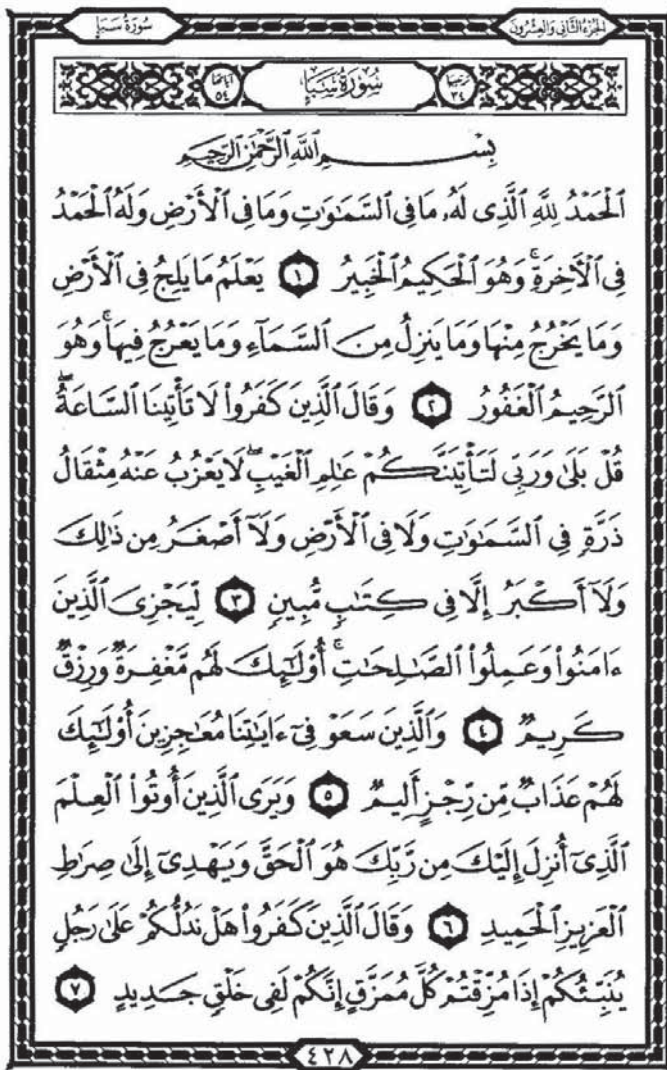 الجزء الثاني والعشرون سورة سبإ
ترتيبها ٣٤ سُورَةُ سَبَإٍ آياتها ٥٤
بِسْمِ ٱللَّهِ ٱلرَّحْمَٰنِ ٱلرَّحِيمِ
ٱلْحَمْدُ لِلَّهِ ٱلَّذِى لَهُۥ مَا فِى ٱلسَّمَٰوَٰتِ وَمَا فِى ٱلْأَرْضِ وَلَهُ ٱلْحَمْدُ
فِى ٱلْءَاخِرَةِ ۚ وَهُوَ ٱلْحَكِيمُ ٱلْخَبِيرُ ١ يَعْلَمُ مَا يَلِجُ فِى ٱلْأَرْضِ
وَمَا يَخْرُجُ مِنْهَا وَمَا يَنزِلُ مِنَ ٱلسَّمَآءِ وَمَا يَعْرُجُ فِيهَا ۚ وَهُوَ
ٱلرَّحِيمُ ٱلْغَفُورُ ٢ وَقَالَ ٱلَّذِينَ كَفَرُوا۟ لَا تَأْتِينَا ٱلسَّاعَةُ ۖ
قُلْ بَلَىٰ وَرَبِّى لَتَأْتِيَنَّكُمْ عَٰلِمِ ٱلْغَيْبِ ۖ لَا يَعْزُبُ عَنْهُ مِثْقَالُ
ذَرَّةٍ فِى ٱلسَّمَٰوَٰتِ وَلَا فِى ٱلْأَرْضِ وَلَآ أَصْغَرُ مِن ذَٰلِكَ
وَلَآ أَكْبَرُ إِلَّا فِى كِتَٰبٍ مُّبِينٍ ٣ لِّيَجْزِىَ ٱلَّذِينَ
ءَامَنُوا۟ وَعَمِلُوا۟ ٱلصَّٰلِحَٰتِ ۚ أُو۟لَٰٓئِكَ لَهُم مَّغْفِرَةٌ وَرِزْقٌ
كَرِيمٌ ٤ وَٱلَّذِينَ سَعَوْ فِىٓ ءَايَٰتِنَا مُعَٰجِزِينَ أُو۟لَٰٓئِكَ
لَهُمْ عَذَابٌ مِّن رِّجْزٍ أَلِيمٌ ٥ وَيَرَى ٱلَّذِينَ أُوتُوا۟ ٱلْعِلْمَ
ٱلَّذِىٓ أُنزِلَ إِلَيْكَ مِن رَّبِّكَ هُوَ ٱلْحَقَّ وَيَهْدِىٓ إِلَىٰ صِرَٰطِ
ٱلْعَزِيزِ ٱلْحَمِيدِ ٦ وَقَالَ ٱلَّذِينَ كَفَرُوا۟ هَلْ نَدُلُّكُمْ عَلَىٰ رَجُلٍ
يُنَبِّئُكُمْ إِذَا مُزِّقْتُمْ كُلَّ مُمَزَّقٍ إِنَّكُمْ لَفِى خَلْقٍ جَدِيدٍ ٧
٤٢٨